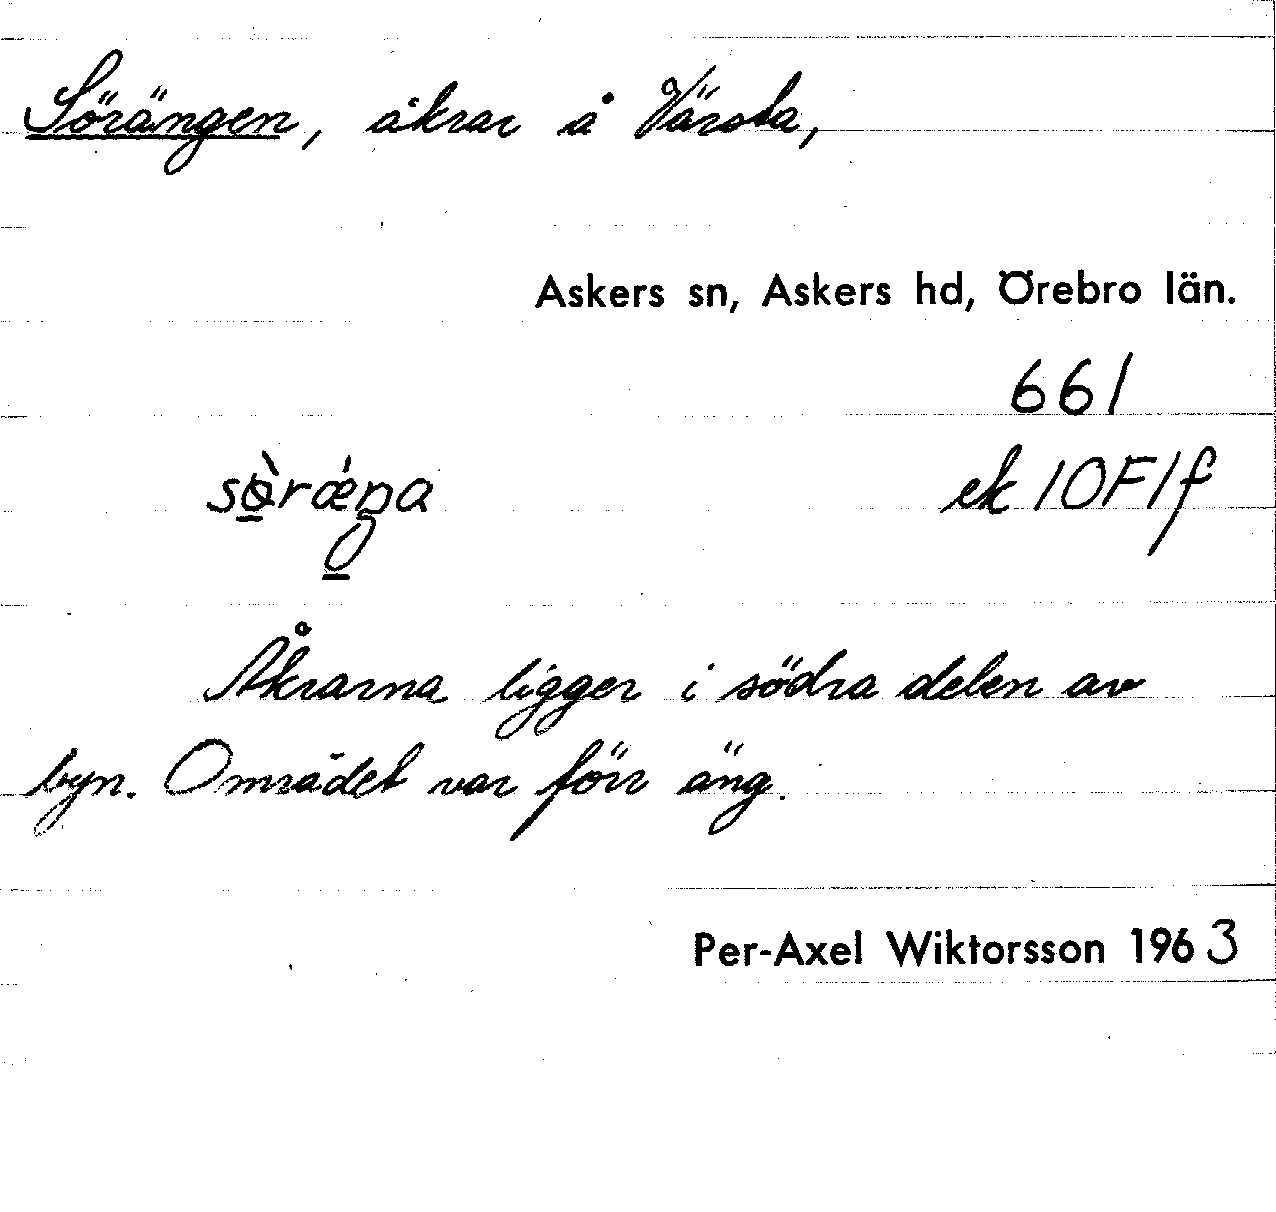 Sörängen, åkrar å Värsta,
Askers sn, Askers hd, Örebro län.
661
sø̀rǽŋa ek 10F1f
Åkrarna ligger i södra delen av
byn. Området var förr äng.
Per-Axel Wiktorsson 1963